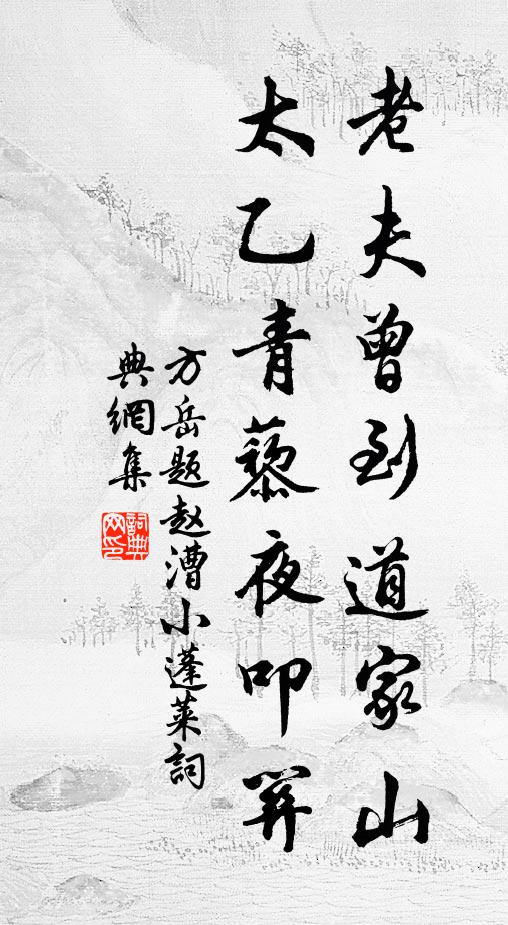 老夫曾到道家山
太乙青藜夜叩関
方岳题赵漕小蓬莱詞
典網集
詞典网印